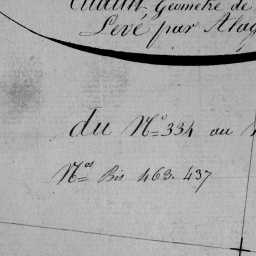 Géomètre de
Levé par
du N° 334 au
N.os Bis 463. 437